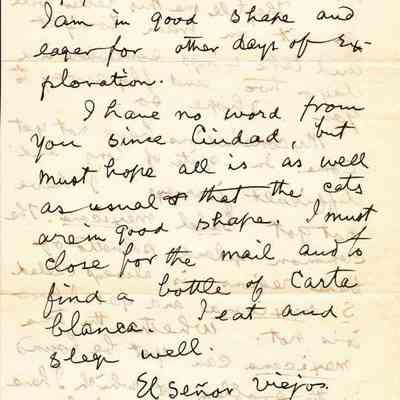 I am in good shape and
eager for other days of Ex-
ploration.
I have no word from
you since Ciudad, but
must hope all is as well
as usual & that the cats
are in good shape. I must
close for the mail and to
find a bottle of Carta
blanca. I eat and
sleep well.
El Señor Viejos.